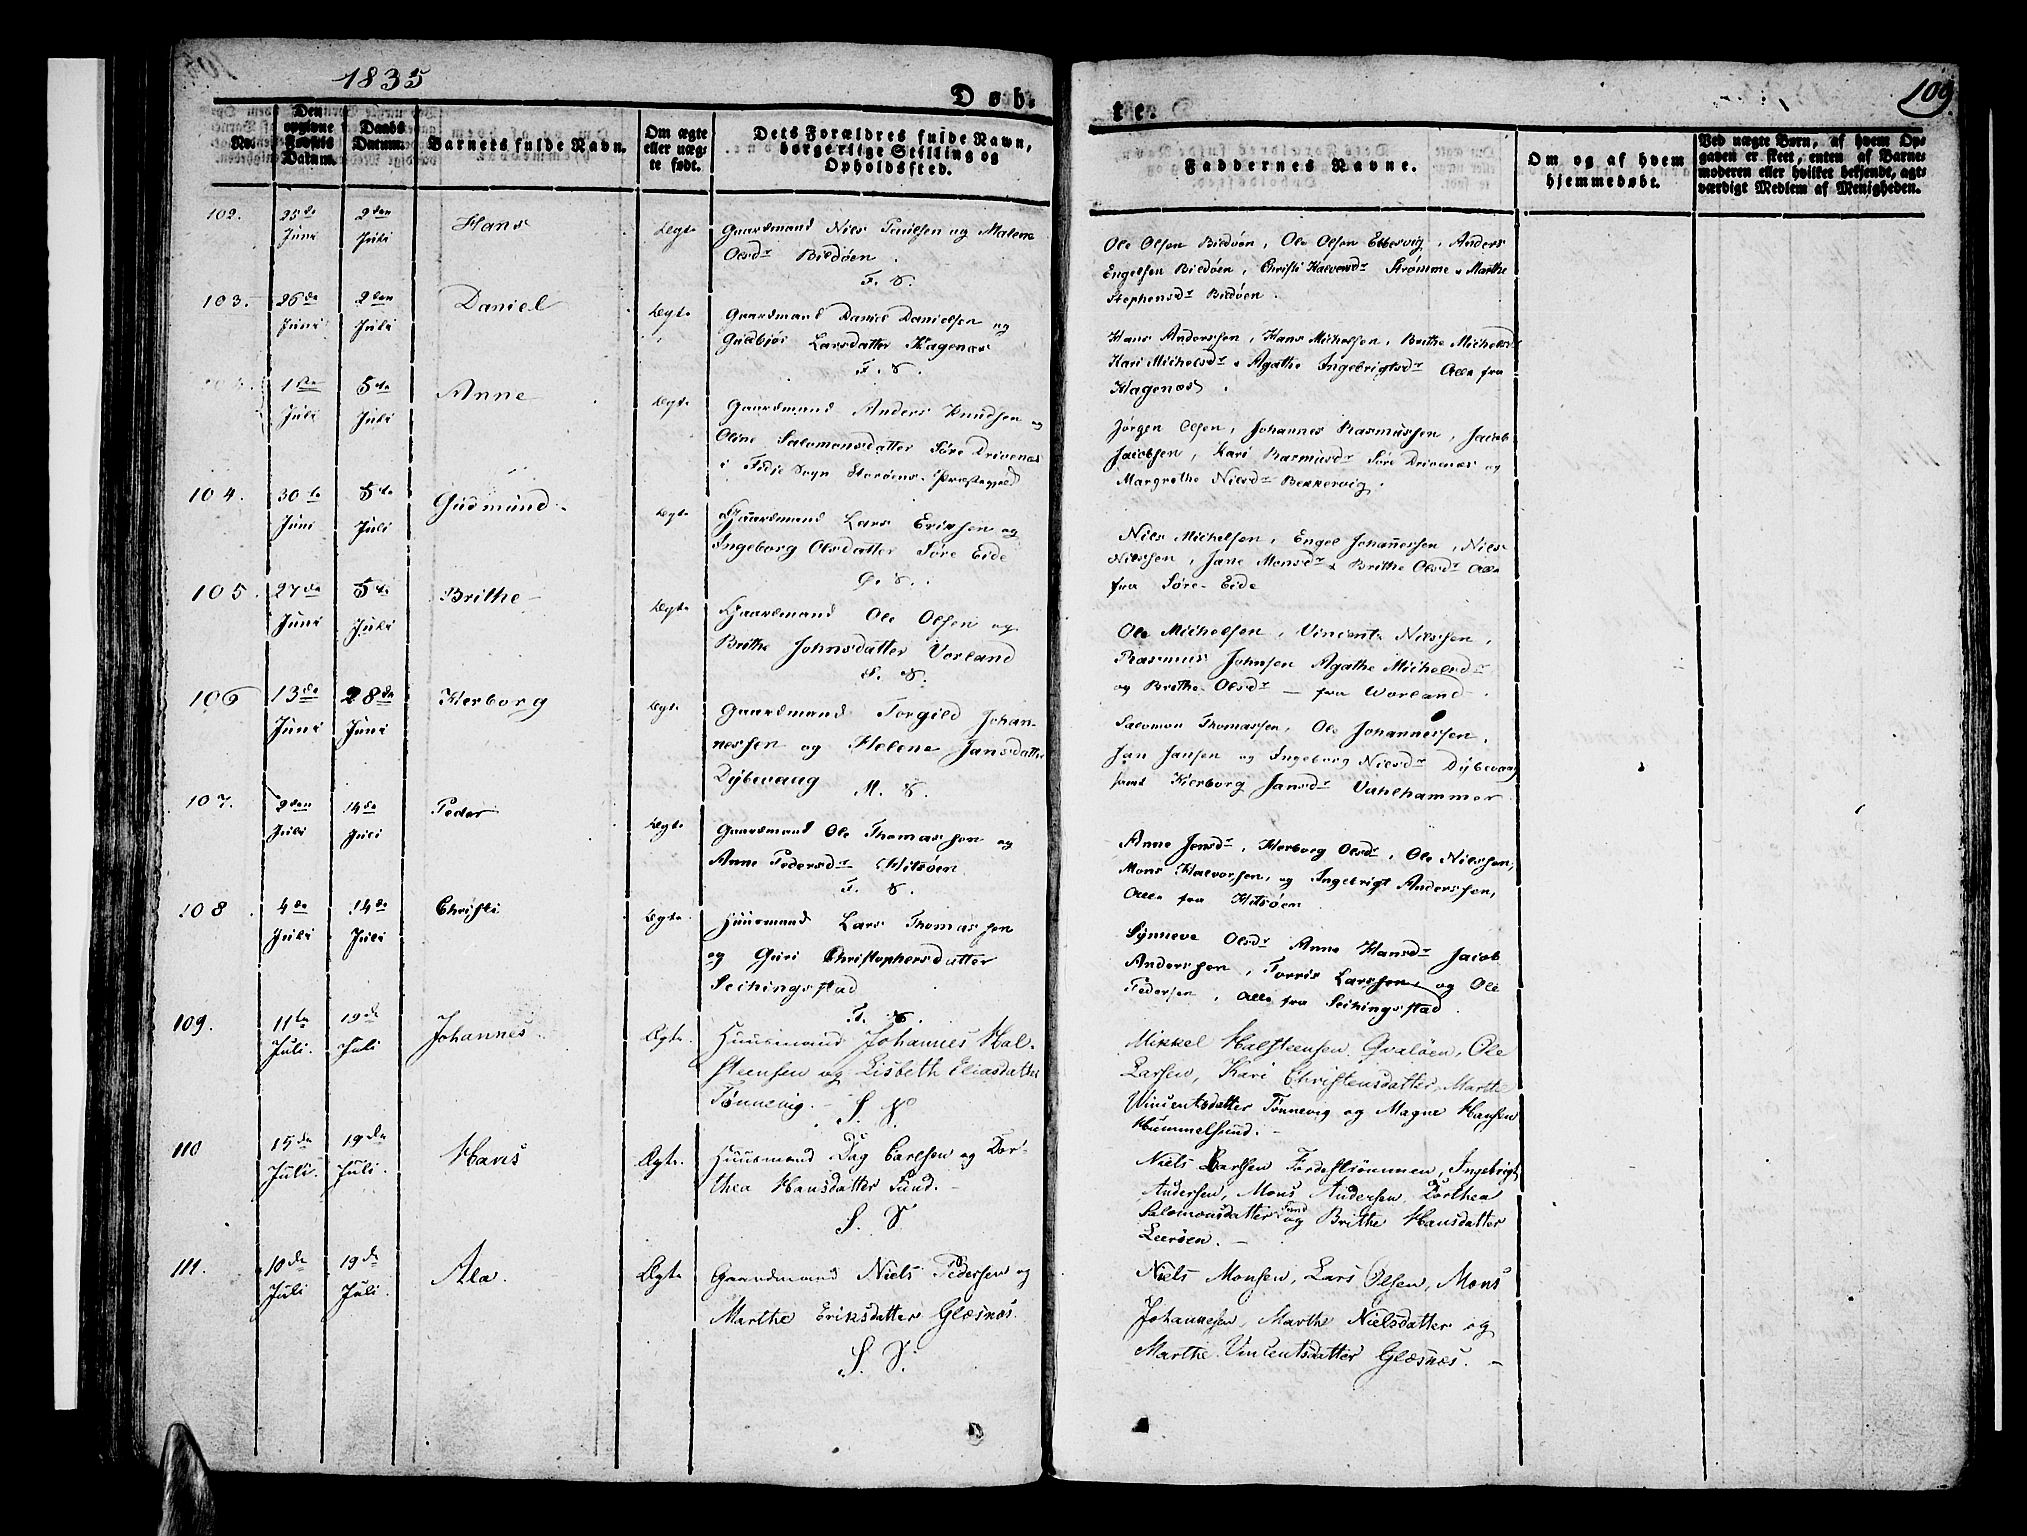 1835
Døb-
te.
109
No.
Den opgivne Fødsels Datum.
Daabs Datum.
Barnets fulde Navn.
Om ægte eller uægte født.
Dets Forældres fulde Navn, borgerlige Stilling og Opholdssted.
Faddernes Navne.
Om og af hvem hjemmedøbt.
Ved uægte Børn, af hvem Opgaven er skeet, enten af Barnemoderen eller hvilket bekjendt, agtværdigt Medlem af Menigheden.
102.
25de Juni
2den Juli
Hans
Ægte
Gaardmand Niels Paulsen og Malene
Olsdr Bildøen.
F. S.
Ole Olsen Bildøen, Ole Olsen Ebbesvig, Anders
Engelsen Bildøen, Christi Halvorsdr Strømme, Marthe
Stephensdr Bildøen.
103.
26de Juni
2den Juli
Daniel
Ægte
Gaardmand Daniel Danielsen og
Guldbjør Larsdatter Hagenæs
F. S.
Hans Anderssen, Hans Michelsen, Brithe Michelsdr
Kari Michelsdr, Agathe Ingebrigtsdr Alle fra
Hagenæs.
1ste Juli
5te Juli
Anne
Ægte
Gaardmand Anders Knudsen og
Oline Salomonsdatter Søre Drivenæs
i Fidje Sogn Storøens Præstegjeld
Jørgen Olsen, Johannes Rasmussen, Jacob
Jacobsen, Kari Rasmusdr Søre Drivenæs og
Margrethe Nielsdr Bekkervig.
104.
30te Juni
5te Juli
Gudmund
Ægte
Gaardmand Lars Erichsen og
Ingeborg Olsdatter Søre Eide
F. S.
Niels Michelsen, Engel Johannessen, Niels
Nilssen, Jane Monsdr & Brithe Olsdr Alle
fra Søre Eide
105.
27de Juni
5te Juli
Brithe
Ægte
Gaardmand Ole Olsen og
Brithe Johnsdatter Vorland
F. S.
Ole Michelsen, Vincents Nilssen,
Rasmus Johnsen Agathe Michelsdr
og Brithe Olsdr — fra Worland.
106
13de Juni
28de Juni
Herborg
Ægte
Gaardmand Torgild Johan-
nessen og Helene Jansdatter
Dybevaag
M. S.
Salomon Thomassen, Ole Johannessen.
Jan Jansen og Ingeborg Nielsdr Dybevaag
samt Herborg Jansdr Vahlhammer
107.
9den Juli
14de Juli
Peder
Ægte
Gaardmand Ole Thomassen og
Anne Pedersdr Hitsøen
F. S.
Anne Jensdr, Herborg Olsdr, Ole Nilssen,
Mons Halvorsen, og Ingebrigt Anderssen,
Alle fra Hitsøen
108
4de Juli
14de Juli
Christi
Ægte
Huusmand Lars Thomassen
og Guri Christophersdatter
Sechingstad
F. S.
Synneve Olsdr Anne Hansdr Jacob
Anderssen, Torris Larssen, og Ole
Pedersen, Alle fra Sechingstad.
109.
11te Juli.
19de Juli
Johannes
Ægte
Huusmand Johannes Hal-
steensen og Lisbeth Eliasdatter
Tønnevig.
S. S.
Mikkel Halsteensen Qvaløen, Ole
Larsen, Kari Christensdatter, Marthe
Wincentsdatter Tønnevig og Magne Hansen
Hummelsund.
110
15de Juli.
19de Juli.
Hans
Ægte.
Huusmand Dag Carlsen og Dor-
thea Hansdatter Sund.
S. S.
Niels Carlsen Førdestrømmen, Ingebrigt
Andersen, Mons Andersen, Dorthea
Salomonsdatter Sund og Brithe Hansdatter
Leerøen.
111.
10de Juli
19de Juli.
Ala.
Ægte
Gaardmand Niels Pedersen og
Marthe Eriksdatter Glæsnæs.
S. S.
Niels Monsen, Lars Olsen, Mons
Johannesen, Marthe Nielsdatter og
Marthe Vincentsdatter Glæsnæs. —